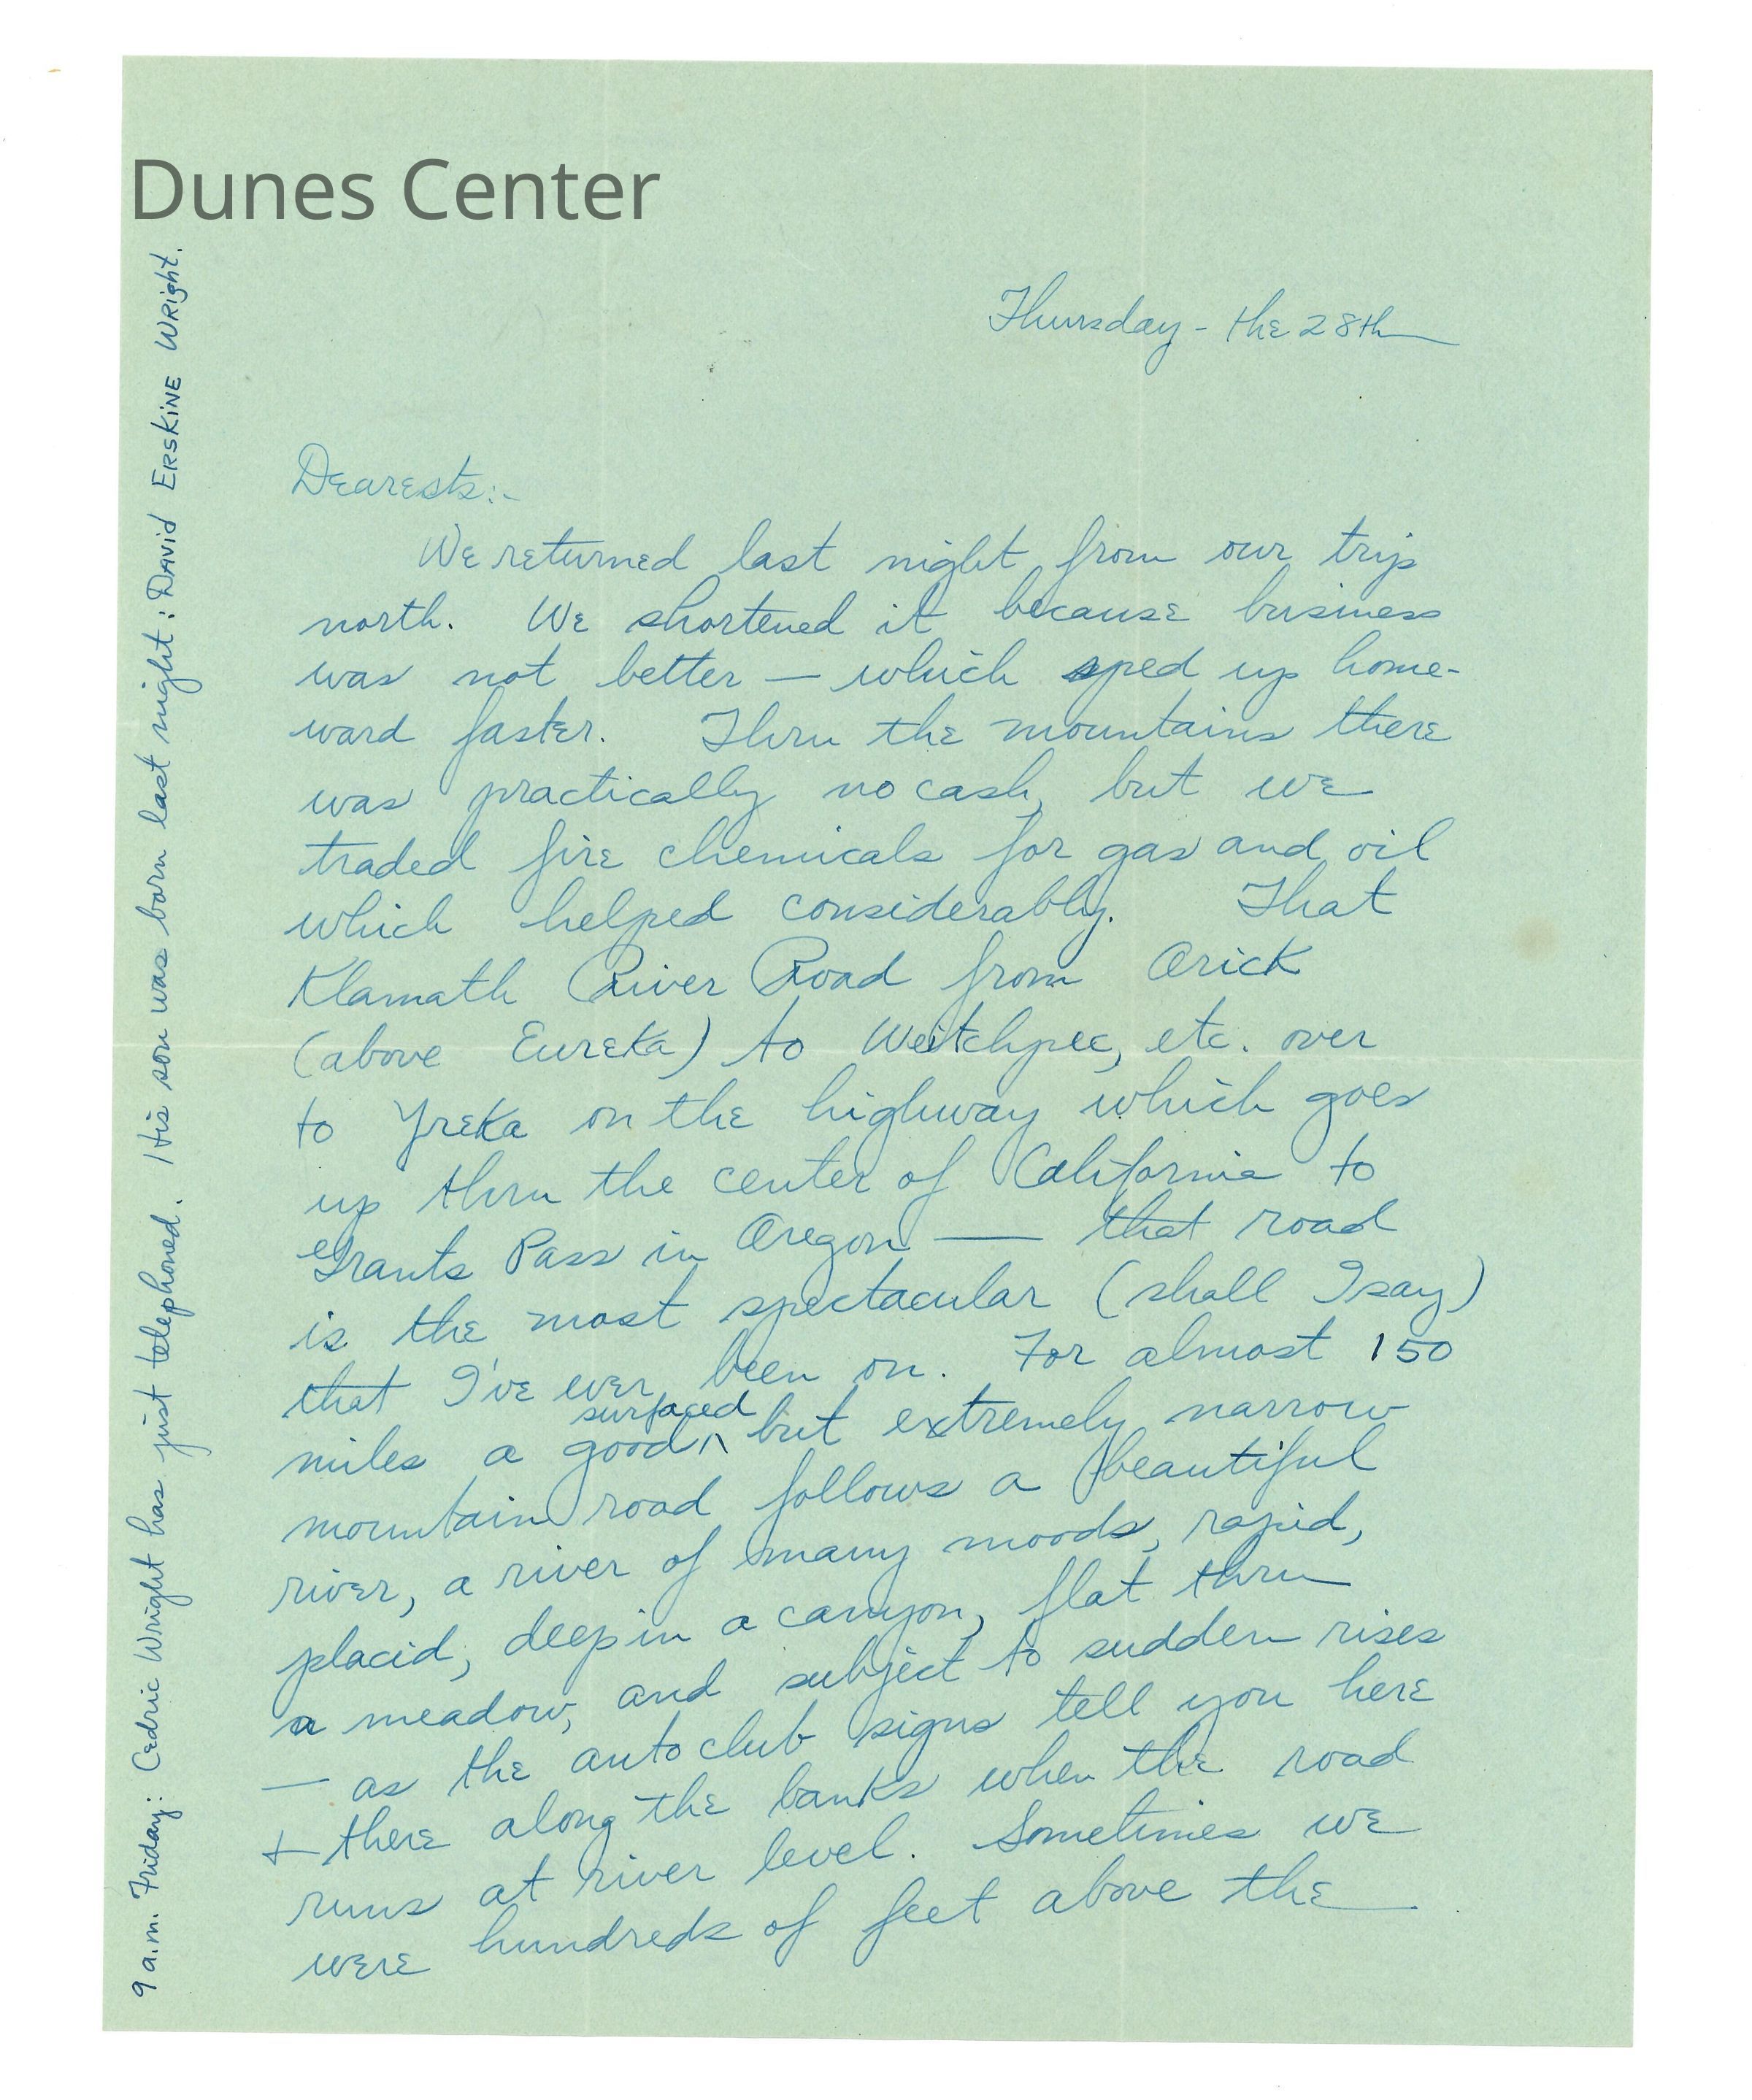 Dunes Center
Thursday - the 28th
Dearests:-
We returned last night from our trip
north. We shortened it because business
was not better — which sped up home-
ward faster. Thru the mountains there
was practically no cash, but we
traded fire chemicals for gas and oil
which helped considerably. That
Klamath River Road from Orick
(above Eureka) to Weitchpec, etc. over
to Yreka on the highway which goes
up thru the center of California to
Grants Pass in Oregon — that road
is the most spectacular (shall I say)
that I've ever been on. For almost 150
miles a good surfaced but extremely narrow
mountain road follows a beautiful
river, a river of many moods, rapid,
placid, deep in a canyon, flat thru
a meadow, and subject to sudden rises
— as the auto club signs tell you here
+ there along the banks when the road
runs at river level. Sometimes we
were hundreds of feet above the
9 a.m. Friday: Cedric Wright has just telephoned. His son was born last night: David Erskine Wright.